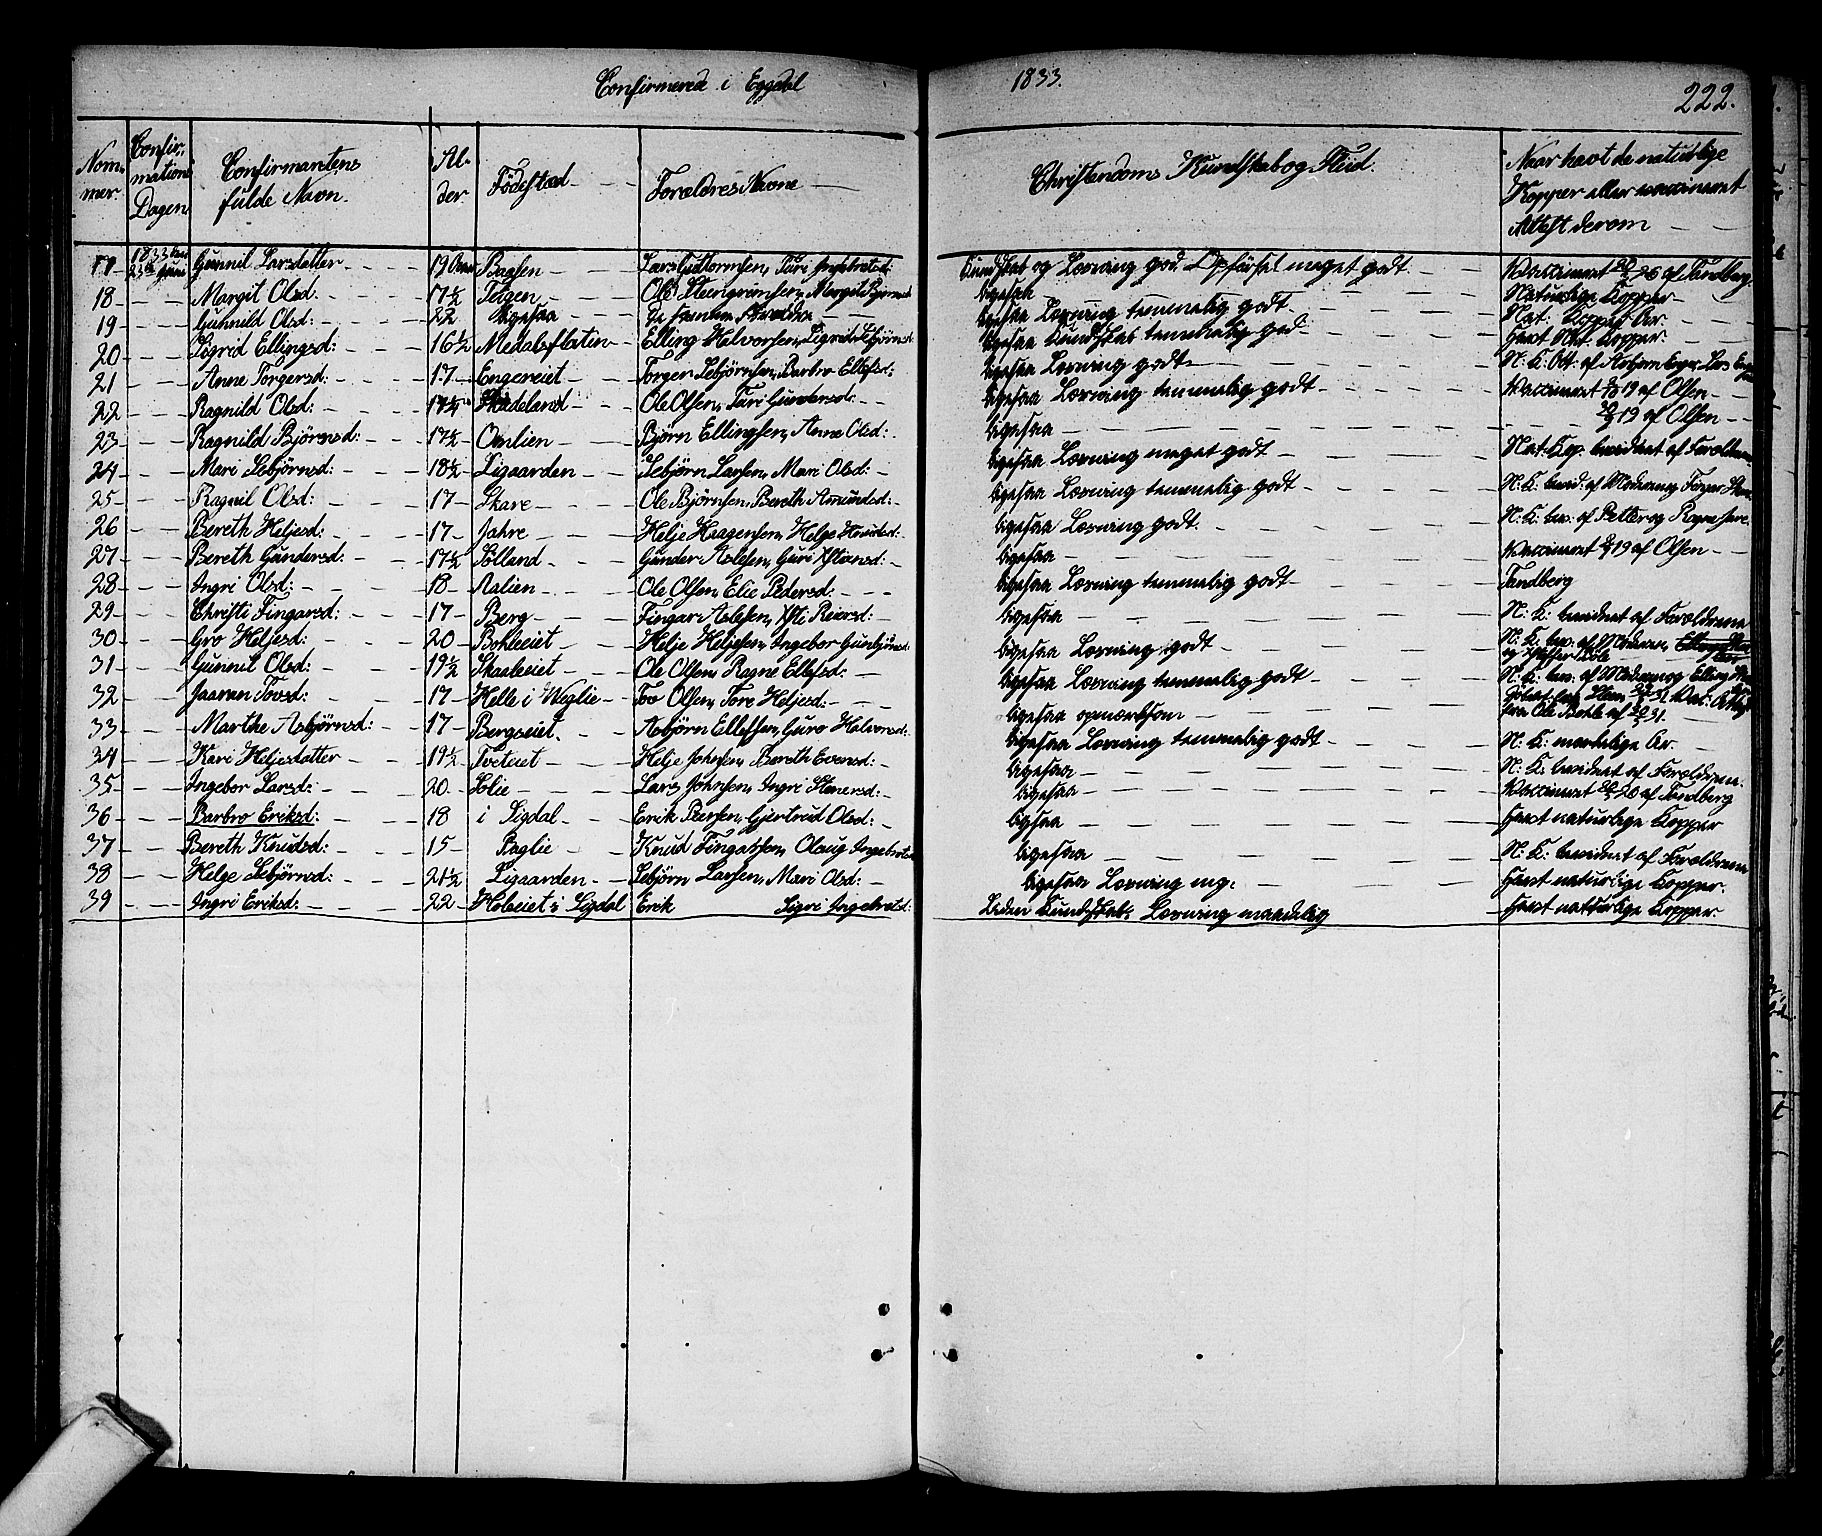 Confirmerede i Eggedal 1833. 222.
Nom-mer. Confir-mations Dagen Confirmantens fulde Navn. Al-der. Fødestæd Forældres Navne Christendoms Kundskab og Flid. Naar havt de naturlige Kopper eller vaccineret Attest derom
17 1833 23de Juni Gunnil Larsdatter 19 Baglien Lars Guttormsen, Kundskab og Lærning god. Opførsel meget godt Vaccineret 26 af Tandberg
18 Margit Olsd. 17½ Teigen Ole Steengrimsen, Margit Bjørnsd ligesaa Naturlige Kopper
19 Gunnild Olsd: 22 ligesaa de samme Forældre ligesaa Lærning temmelig godt Nat: Kopper Ar.
20 Sigrid Ellingsd: 16½ Medalsflatin Elling Halvorsen, Sigrid Sebjørnsd: ligesaa Kundskab temmelig god havt Nat. Kopper.
21 Anne Torgersd: 17 Engereiet Torger Sebjørnsen, Barbro Ellefsd: ligesaa Lærning godt N: K: Att. af
22 Ragnild Olsd: 17¼ Skadeland Ole Olsen, Turi Gundersd: ligesaa Lærning temmelig godt Vaccineret 19 af Olsen
23 Ragnild Bjørnsd: 17½ Omlien Bjørn Ellingsen, Anne Olsd: ligesaa 19 af Olsen
24 Mari Sebjørnsd: 18½ Ligaarden Sebjørn Larsen, Mari Olsd: ligesaa Lærning meget godt Nat: Kop. bevidnet af Forældrene
25 Ragnil Olsd: 17 Skare Ole Bjørnsen, Bereth Amundsd: ligesaa Lærning temmelig godt N: K: bevid. af Moderen og
26 Bereth Heljesd: 17 Jahre Helje Haagensen, Helge Knudsd: ligesaa Lærning godt. N: K: bev. af Petter og
27 Bereth Gundersd: 17½ Sølland Gunder Aslesen, Guri ligesaa Vaccineret 19 af Olsen
28 Ingri Olsd: 18 Aalien Ole Olsen, Elie Pedersd: ligesaa Lærning temmelig godt Tandberg
29 Christi Fingarsd: 17 Berg Fingar Aslesen, Xsti Reiersd: ligesaa N: K: bevidnet af Forældrene
30 Gro Heljesd: 20 Bohleeiet Helje Heljesen, Ingebor Gunbjørnsd: ligesaa Lærning godt N: K: bev. af Moderen,
31 Gunnil Olsd: 19½ Skaleeiet Ole Olsen, Ragne Ellefsd: ligesaa Lærning temmelig godt N: K: bev. af Moderen og Elling
32 Jaaran Tovsd: 17 Helle i Weglie Tov Olsen, Tore Heljesd: ligesaa opmærksom fra Ole Bohle af 31.
33 Marthe Asbjørnsd: 17 Bergseiet. Asbjørn Ellefsen, Guro Halvorsd: ligesaa Lærning temmelig godt N: K: mærkelige Ar.
34 Kari Heljesdatter 19½ Tveteiet Helje Johnsen, Bereth Evensd: ligesaa N: K: bevidnet af Forældrene.
35 Ingebor Larsd: 20. Holie Lars Johnsen, Ingri Stenersd: ligesaa Vaccineret 20 af Tandberg
36 Barbro Eriksd: 18 i Sigdal Erik Persen, Gjertrud Olsd: ligesaa havt naturlige Kopper
37 Bereth Knudsd: 15 Baglie Knud Fingarsen, Olaug Ingebretsd ligesaa N: K: bevidnet af Forældrene
38 Helge Sebjørnsd: 21½ Ligaarden Sebjørn Larsen, Mari Olsd: ligesaa Lærning mg: havt naturlige Kopper.
39 Ingri Eriksd: 22 Hobeiet i Sigdal Erik Sigri Ingebretsd: Liden Kundskab. Lærning maadelig havt naturlige Kopper.